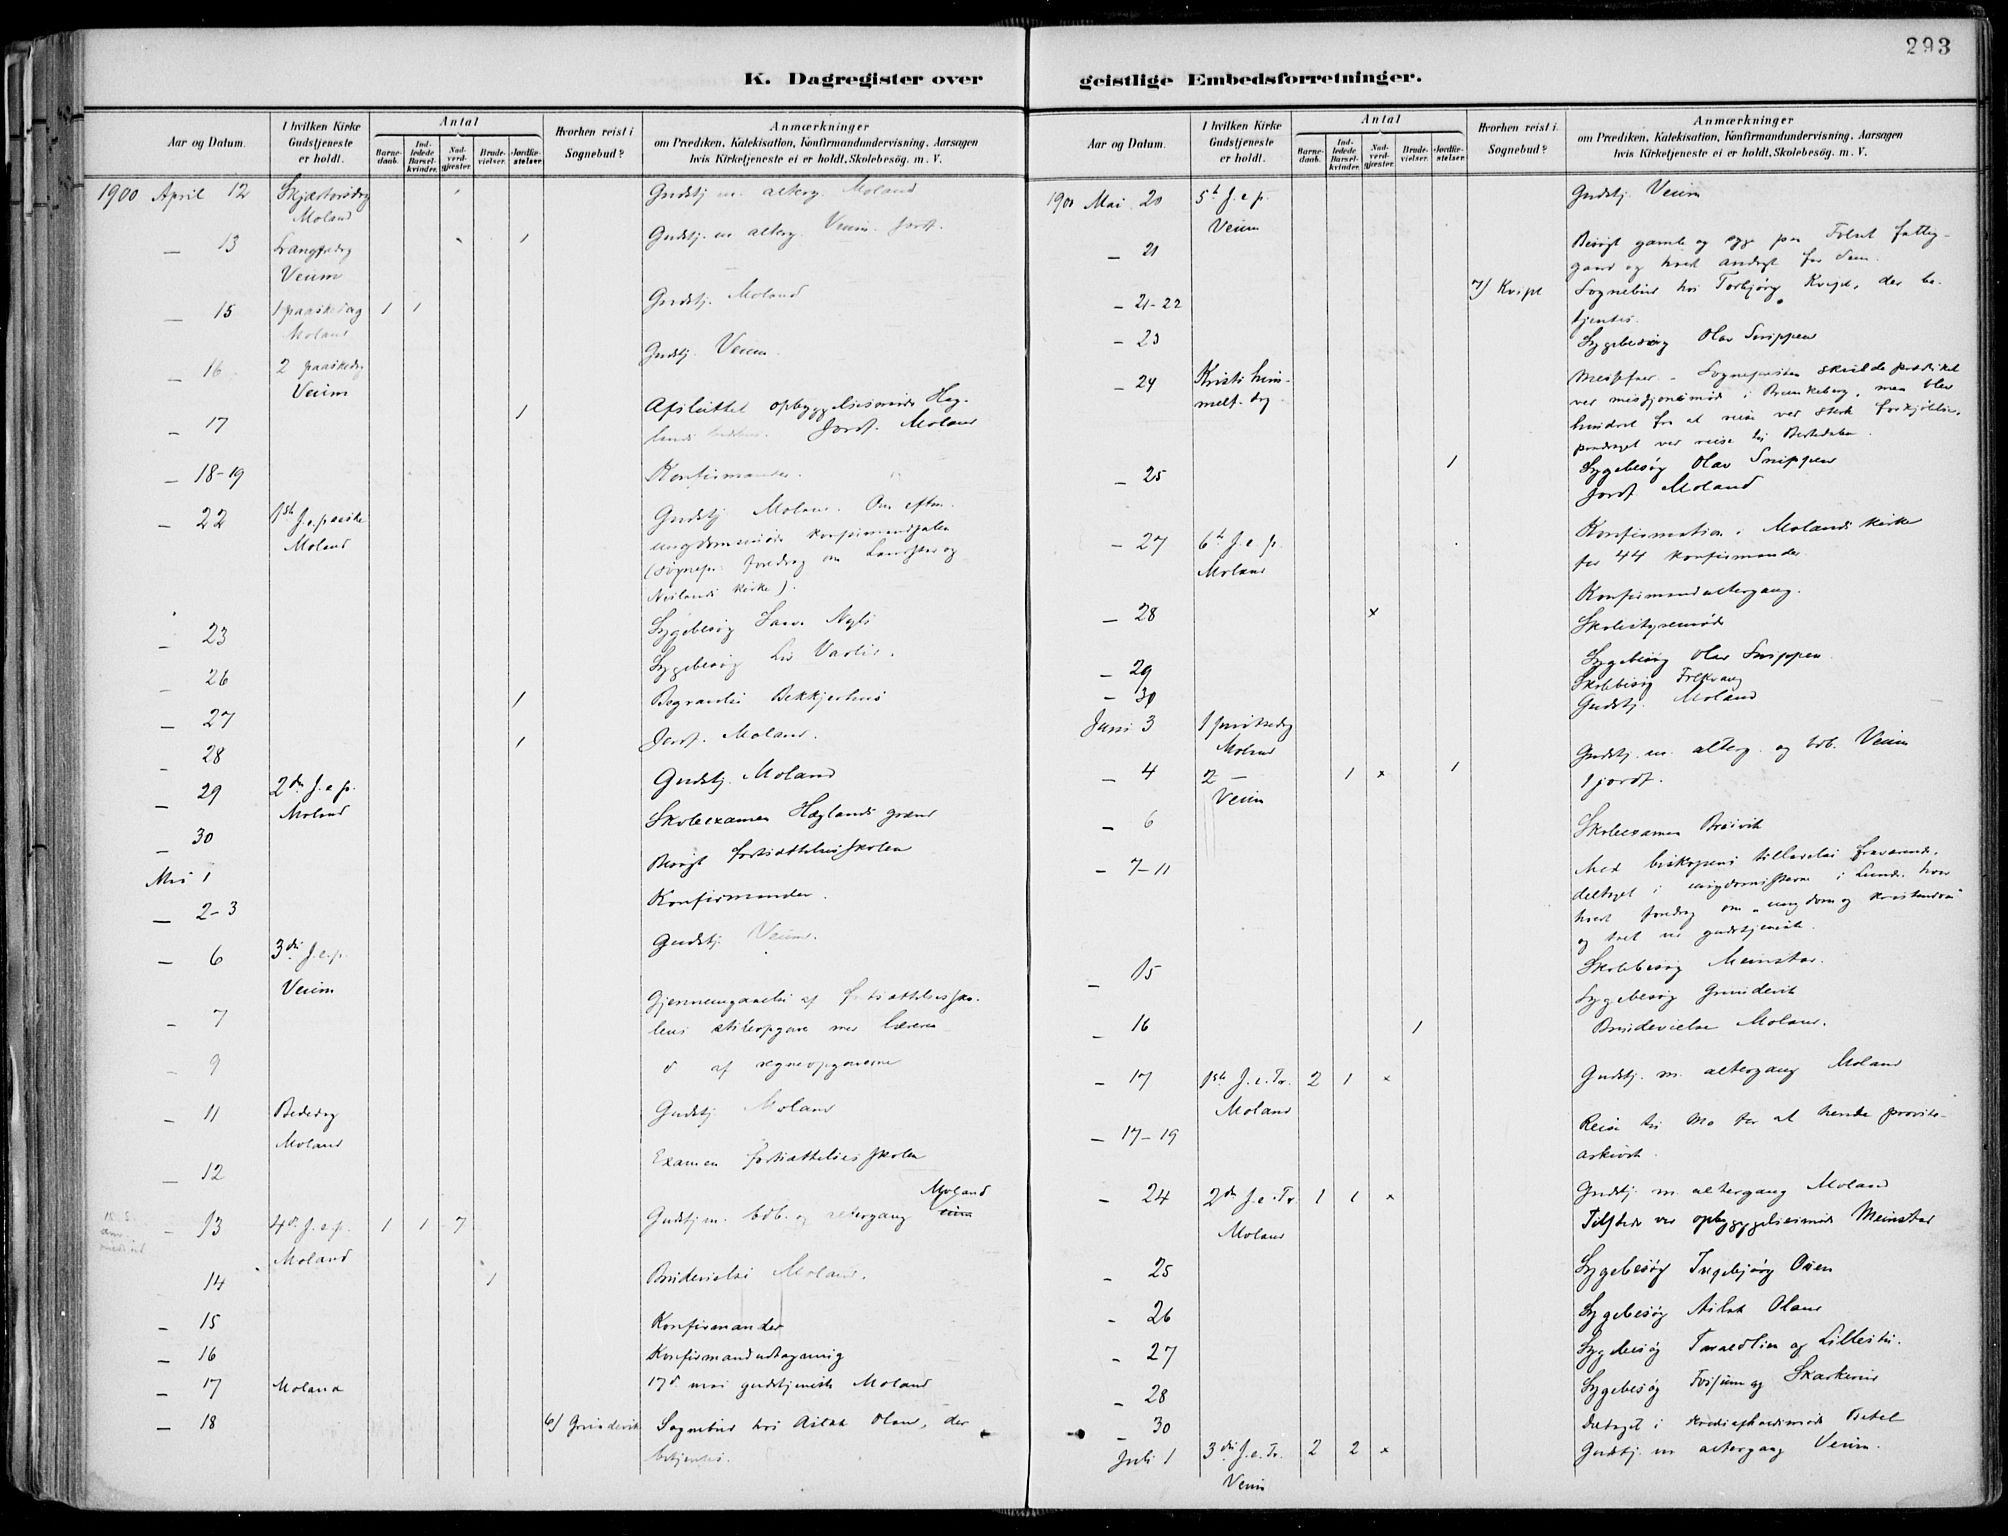 293
K. Dagregister over
Aar og Datum.
I hvilken Kirke Gudstjeneste er holdt.
Antal
Barnedaab.
Indledede Barselkvinder.
Nadverdgjester.
Brudevielser.
Jordfæstelser.
Hvorhen reist i Sognebud?
Anmærkninger
om Prædiken, Katekisation, Konfirmandundervisning, Aarsagen
hvis Kirketjeneste ei er holdt, Skolebesøg. m. V.
1900 April 12 Skjærtorsdag Gudstj. m. alterg. Moland
Moland
— 13 Langfredag 1 Gudstj. m alterg. Veum. Jordf.
Veum
— 15 1 paaskedag 1 1 Gudstj. Moland
Moland
— 16 2 paaskedag Gudstj. Veum
Veum
— 17 1 Afsluttet opbyggelsesmøde
Jordf. Moland
— 18-19 Konfirmander.
— 22 1ste S. e. paaske Gudstj. Moland. Om efterm.
Moland ungdomsmøde konfirmandsalen
(sognepr. foredrag om og
Neslands kirke).
— 23 Sygebesøg Nyli
— 26 Sygebesøg Liv
— 27 1 Begravelse Bekkjerhus
— 28 1 Jordf. Moland.
— 29 2den S. e. p. Gudstj. Moland
Moland
— 30 Skoleexamen Høglands grænd
Mai 1 Besøgt fortsættelsesskolen
— 2-3 Konfirmander.
— 6 3die S. e. p. Gudstj. Veum.
Veum
— 7 Gjennemgaaelse af fortsættelsessko-
lens stileopgave med læreren
— 9 do af regneopgaverne
— 11 Bededag Gudstj. Moland
Moland
— 12 Examen fortsættelsesskolen
Moland
— 13 4de S. e. p. 1 1 7 Gudstj m. bdb. og altergang Veum
Moland
14 1 Brudevielse Moland.
— 15 Konfirmander
— 16 Konfirmandudtagning
— 17 Moland 17de mai gudstjeneste Moland
— 18 6) Grundevik Sognebud hos Aslak Olavs, der
betjentes.
geistlige Embedsforretninger.
Aar og Datum.
I hvilken Kirke Gudstjeneste er holdt.
Antal
Barnedaab.
Indledede Barselkvinder.
Nadverdgjester.
Brudevielser.
Jordfæstelser.
Hvorhen reist i Sognebud?
Anmærkninger
om Prædiken, Katekisation, Konfirmandundervisning, Aarsagen
hvis Kirketjeneste ei er holdt, Skolebesøg. m. V.
1900 Mai 20 5te S. e p. Gudstj. Veum
Veum
— 21 Besøgt gamle og syge paa fattig-
gaard og holdt andagt for dem.
— 21-22 7) Kvipt Sognebud hos Torbjørg Kvipt, der be-
tjentes.
— 23 Sygebesøg Olav Snippen
— 24 Kristi him- Messefald. Sognepresten skulde prædiket
melf. dag ved misjonsmøde i Brunkeberg, men blev
hindret fra at reise ved sterk forkjølelse,
paadraget ved reise til
— 25 1 Sygebesøg Olav Snippen
Jordf Moland
— 27 6te S. e. p. Konfirmation i Molands kirke
Moland for 44 konfirmander.
— 28 x Konfirmandaltergang.
Skolestyremøde
— 29 Sygebesøg Olav Snippen
— 30 Skolebesøg Folkvang
Juni 3 1 pinsedag Gudstj. Moland
Moland
— 4 2 — 1 x 1 Gudstj. m. alterg. og bdb. Veum
Veum 1 jordf.
— 6 Skoleexamen Breivik
— 7-11 Med biskopens tilladelse fraværende,
deltaget i ungdomsstevne i Lunde, hvor
holdt foredrag om „ungdom og kristendom"
og talt ved gudstjeneste.
— 15 Skolebesøg Meinstad.
Sygebesøg Grundevik
— 16 1 Brudevielse Moland.
— 17 1ste S. e. Tr. 2 1 x Gudstj. m. altergang Moland
Moland
— 17-19 Reise til Mo for at hende provste-
arkivet.
— 24 2den S. e. Tr. 1 1 x Gudstj. m. altergang Moland
Moland Tilstede ved opbyggelsesmøde Meinstad
— 25 Sygebesøg Ingebjørg Oien
— 26 Sygebesøg Aslak Olavs
— 27 Sygebesøg og Lillestu.
— 28 Sygebesøg og
— 30 Deltaget i Betel
Juli 1 3die S. e. Tr. 2 2 x Gudstj. m altergang Veum.
Veum